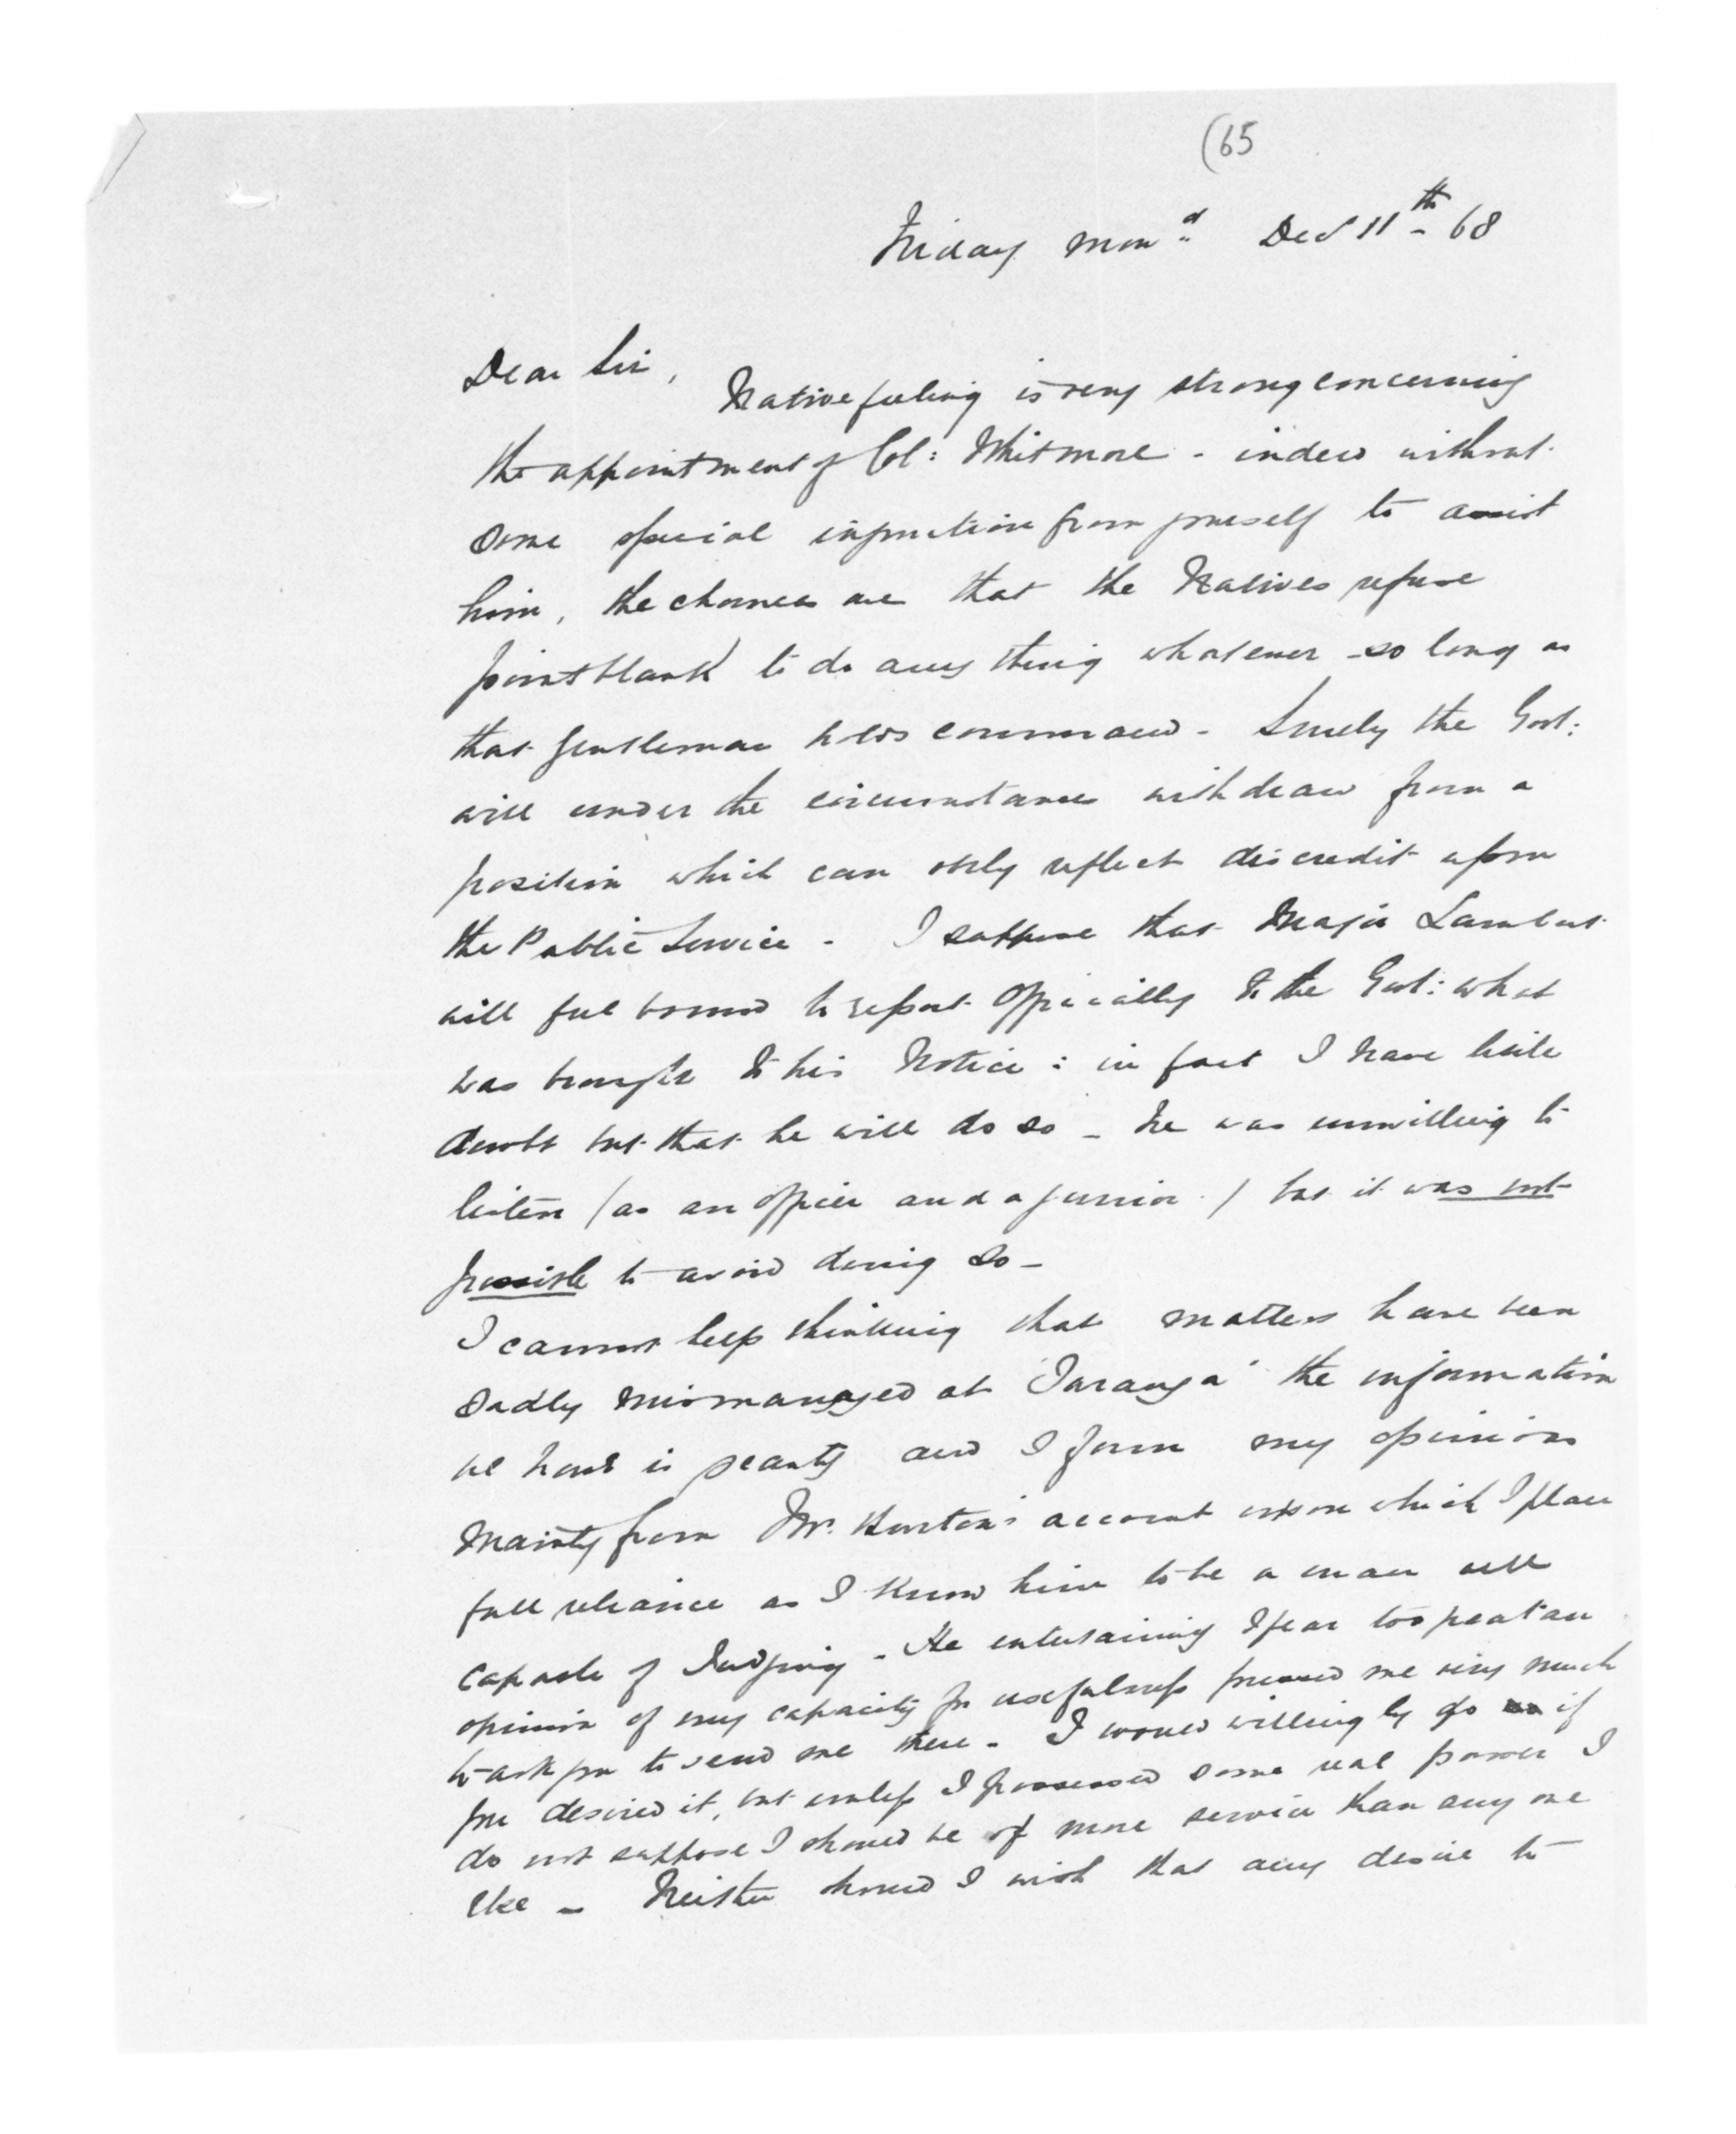 (65
Friday Mong Dec 11th - 68
Dear Sir,
Native feeling is very strong concerning
the appointment of Col: Whitmore - indeed without
some special injunction from yourself to assist
him, the chances are that the Natives refuse
point blank to do any thing whatever - so long as
that gentleman holds command - Surely the Govt:
will under the circumstances withdraw from a
position which can only reflect discredit upon
the Public Service - I suppose that Major Lambert
will feel bound to report officially to the Govt: what
was brought to his Notice : in fact I have little
doubt but that he will do so - he was unwilling to
listen (as an officer and a junior.) but it was not
possible to avoid doing so -
I cannot help thinking that matters have been
sadly mismanaged at Turanga the information
we have is scanty and I form my opinions
mainly from Mr. account upon which I place
full reliance as I know him to be a man well
capable of Judging - He entertaining I fear too great an
opinion of my capacity for usefulness pressed me very much
to ask you to send me there - I would willingly go if
you desired it, but unless I possessed some real power I
do not suppose I should be of more service than any one
else - Neither should I wish that any desire to